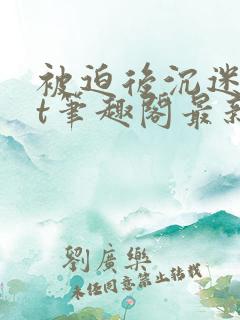 被迫後沉迷
t筆趣閣最新
劉廣樂
未经同意禁止转载